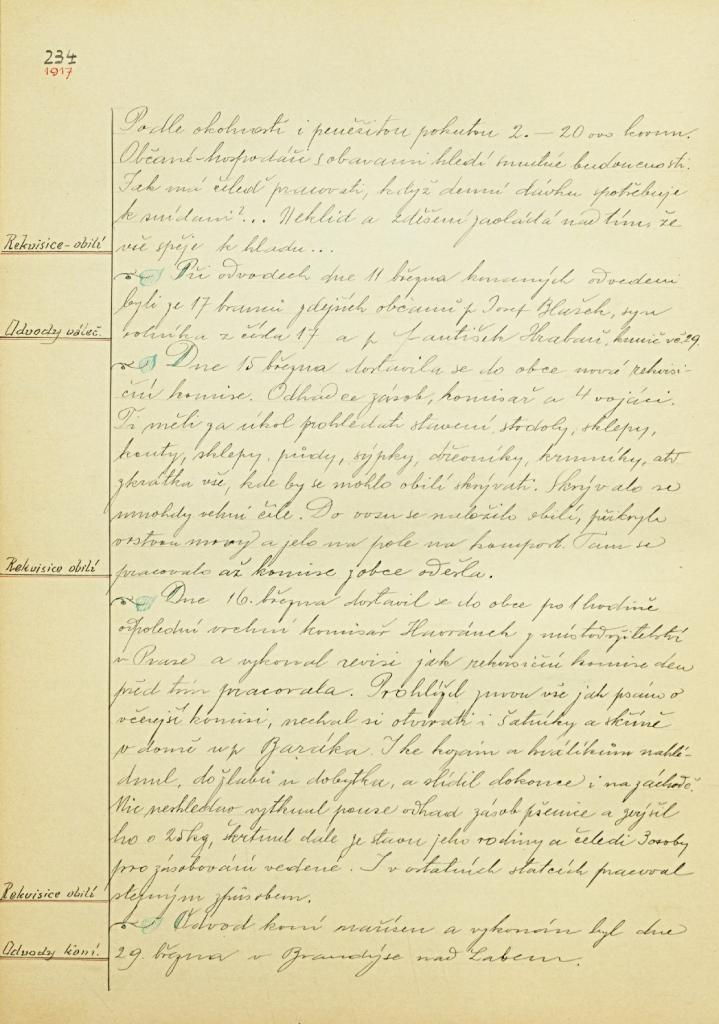 234
1917
Podle okolností i peněžitou pokutou 2.—20 000 korun.
Občané-hospodáři s obavami hledí smutné budoucnosti.
Jak má čeleď pracovati, když denní dávku spotřebuje
k snídani?... Neklid a zděšení zavládá nad tím, že
Rekvisice-obilí
vše spěje k hladu...
Při odvodech dne 11 března konaných odvedeni
byli ze 17 branců zdejších občanů p. Josef Blažek, syn
Odvody váleč.
rolníka z čísla 17 a p. František Hrabař, kunič vč 29.
Dne 15 března dostavila se do obce nová rekvisi-
ční komise. Odhadce zásob, komisař a 4 vojáci.
Ti měli za úkol prohledati stavení, stodoly, sklepy,
kouty, sklepy, půdy, sýpky, dřevníky, krmníky, atd
zkrátka vše, kde by se mohlo obilí skrývati. Skrývalo se
mnohdy velmi čile. Do vozu se naložilo obilí, přikrylo
vrstvou mrvy a jelo na pole na kompost. Tam se
Rekvisice obilí
pracovalo až komise z obce odešla.
Dne 16. března dostavil se do obce po 1 hodině
odpolední vrchní komisař Havránek z místodržitelství
v Praze a vykonal revisi jak rekvisiční komise den
před tím pracovala. Prohlížel znovu vše jak psáno o
včerejší komisi, nechal si otvírati i šatníky a skříně
v domě u p. Baráka. I ke kozám a králíkům nahlé-
dnul, do žlabů u dobytka, a slídil dokonce i na záchodě.
Nic neshledav vytknul pouze odhad zásob pšenice a zvýšil
ho o 25kg, škrtnul dále ze stavu jeho rodiny a čeledi 3 osoby
pro zásobování vedené. I v ostatních statcích pracoval
Rekvisice obilí
stejným způsobem.
Odvod koní nařízen a vykonán byl dne
Odvody koní.
29. března v Brandýse nad Labem.